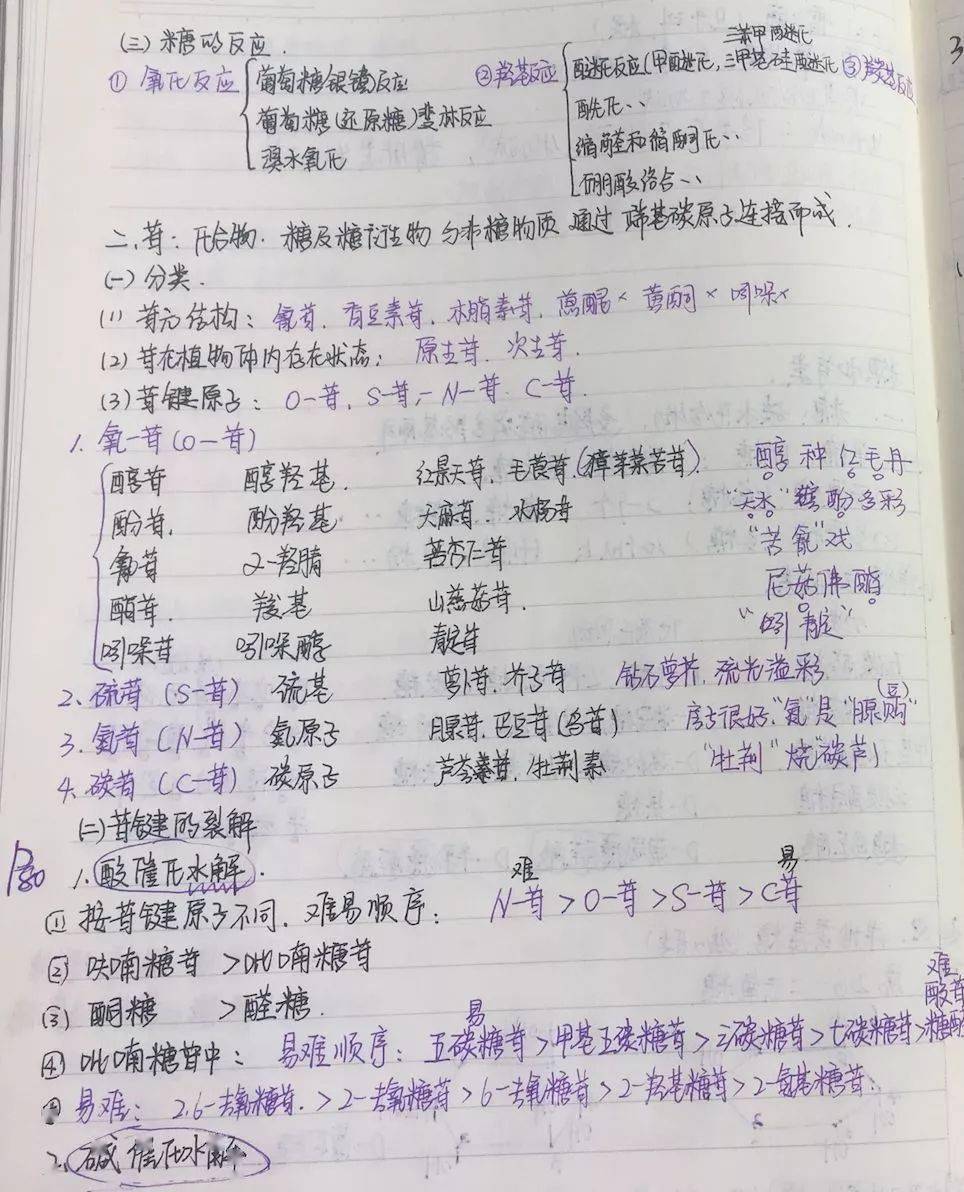 (三)糖的反应.
三苯甲醚化
① 氧化反应 ② 羟基反应 ③ 羰基反应
葡萄糖银镜反应
葡萄糖(还原糖)斐林反应
溴水氧化
醚化反应(甲醚化, 三甲基硅醚化
酰化、、
缩醛和缩酮化、、
硼酸络合、、
二、苷: 化合物. 糖及糖衍生物与非糖物质 通过 端基碳原子连接而成.
(一) 分类.
(1) 苷元结构: 氰苷. 香豆素苷. 木脂素苷. 蒽醌× 黄酮× 吲哚×
(2) 苷在植物体内存在状态: 原生苷. 次生苷.
(3) 苷键原子: O-苷. S-苷, N-苷. C-苷.
1. 氧-苷(O-苷)
醇苷 醇羟基. 红景天苷, 毛茛苷.(獐芽菜苦苷). 醇 种 仁 毛丹
酚苷. 酚羟基 天麻苷. 水杨苷 "天水" 酚多彩
氰苷 α-羟腈 苦杏仁苷 "苦氰"戏
酯苷. 羧基 山慈菇苷. 尼菇佛酯
吲哚苷 吲哚醇 靛苷 "吲靛"
2. 硫苷 (S-苷) 硫基 萝卜苷. 芥子苷 钻石萝芥, 流光溢彩
3. 氮苷 (N-苷) 氮原子 腺苷. 巴豆苷(鸟苷) 房子很好, "氮"是"腺(豆)购"
4. 碳苷 (C-苷) 碳原子 芦荟素苷. 牡荆素 "牡荆" 烧"碳芦"
(二)苷键的裂解
P80 1. 酸催化水解.
难 易
① 按苷键原子不同. 难易顺序: N-苷 > O-苷 > S-苷 > C苷
② 呋喃糖苷 > 吡喃糖苷
③ 酮糖 > 醛糖.
易 难
④ 吡喃糖苷中: 易难顺序: 五碳糖苷 > 甲基五碳糖苷 > 六碳糖苷 > 七碳糖苷 > 糖醛酸苷
易难: 2.6-去氧糖苷. > 2-去氧糖苷 > 6-去氧糖苷 > 2-羟基糖苷 > 2-氨基糖苷.
2. 碱催化水解